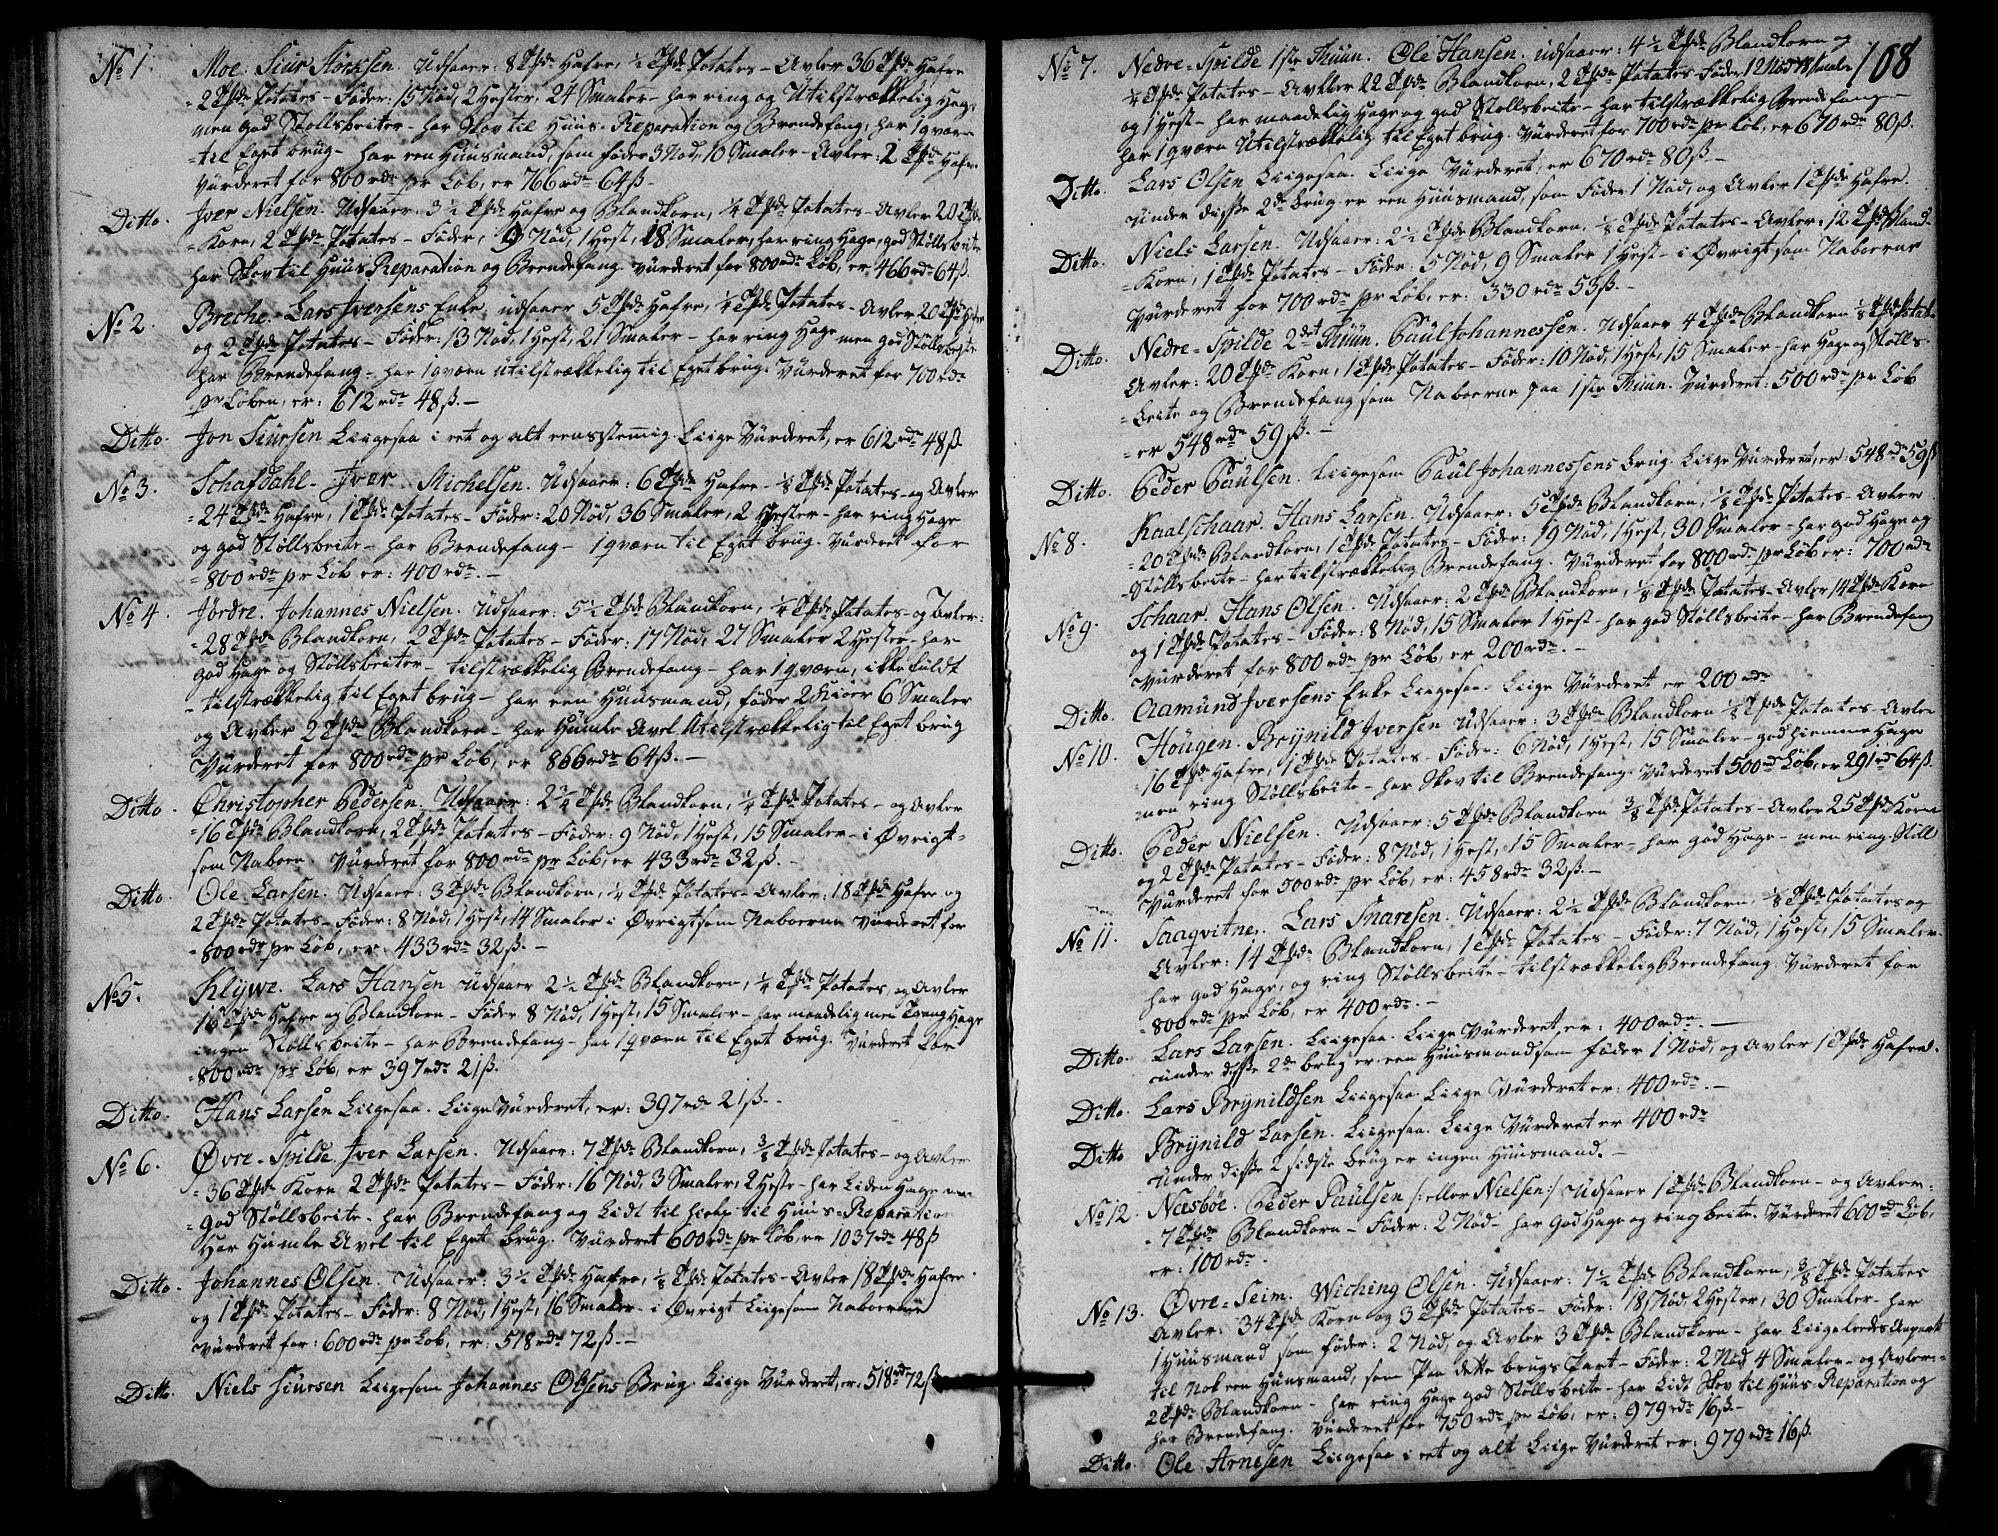 No 1. Moe. Siur Størksen. Udsaaer: 8 Tpde Hafre, ½ Tpde Potates – Avler 36 Tpde Hafre
= 2 Tpde Potates – Føder: 15 Nød, 2 Hester, 24 Smaler – har ring og Utilstrækkelig Hage
men god Støllsbeiter – har Skov til Huus-Reparation og Brendefang, har 1 qværn
= til Eget brug – har een Huusmand, som føder 3 Nød, 10 Smaler – Avler: 2 Tpde Hafre
Vürderet for 800 rdr pr Løb, er 766 rdr 64 ß. –
Ditto. Iver Nielsen. Udsaaer: 3½ Tpde Hafre og Blandkorn, ¼ Tpde Potates – Avler 20 Tpde
= Korn, 2 Tpde Potates – Føder, 9 Nød, 1 Hest, 18 Smaler, har ring Hage, god Støllsbeite
har Skov til Huus Reparation og Brendefang. Vürderet for 800 rdr Løb, er 466 rdr 64 ß.
No 2. Breche. Lars Iversens Enke, udsaaer 5 Tpde Hafre, ¼ Tpde Potates – Avler 20 Tpde Hafre
og 2 Tpde Potates – Føder: 13 Nød, 1 Hest, 21 Smaler – har ring Hage men god Støllsbeite
har Brendefang – har 1 qværn utilstrækkelig til Eget brug. Vürderet for 700 rdr
pr Løben, er: 612 rdr 48 ß. –
Ditto. Jon Siursen Liigesaa i eet og alt eensstemmig. Liige Vürderet, er 612 rdr 48 ß.
No 3. Schafdahl – Iver Michelsen. Udsaaer: 6 Tpde Hafre – ⅛ Tpde Potates – og Avler
= 24 Tpde Hafre, 1 Tpde Potates – Føder: 20 Nød, 36 Smaler, 2 Hester – har ring Hage
og god Støllsbeite – har Brendefang – 1 qværn til Eget brug. Vürderet for
= 800 rdr pr Løb er: 400 rdr. –
No 4. Jordre. Johannes Nielsen. Udsaaer: 5½ Tpde Blandkorn, ¼ Tpde Potates – og Avler:
= 28 Tpde Blandkorn, 2 Tpde Potates – Føder: 17 Nød, 27 Smaler 2 Hester – har
god Hage og Støllsbeiter – tilstrækkelig Brendefang – har 1 qværn, ikke fuldt
= tilstrækkelig til Eget brug – har een Huusmand, føder 2 Kiøer 6 Smaler
og Avler 2 Tpde Blandkorn – har Humle Avel Utilstrækkelig til Eget brug
Vürderet for 800 rdr pr Løb, er 866 rdr 64 ß. –
Ditto. Christopher Pedersen. Udsaaer: 2¾ Tpde Blandkorn, ¼ Tpde Potates – og Avler
= 16 Tpde Blandkorn, 2 Tpde Potates – Føder: 9 Nød, 1 Hest, 15 Smaler – i Øvrigt –
som Naboen. Vürderet for 800 rdr pr Løb, er 433 rdr 32 ß. –
Ditto. Ole Larsen. Udsaaer: 3 Tpde Blandkorn, ¼ Tpde Potates – Avler: 18 Tpde Hafre og
2 Tpde Potates – Føder: 8 Nød, 1 Hest, 14 Smaler i Øvrigt som Naboerne Vürderet for
= 800 rdr pr Løb, er: 433 rdr 32 ß. –
No 5. Klÿwe. Lars Hansen Udsaaer 2½ Tpde Blandkorn, ¼ Tpde Potates, og Avler
16 Tpde Hafre og Blandkorn – Føder 8 Nød, 1 Hest, 15 Smaler – har maadelig men Trang Hage
ingen Støllsbeite – har Brendefang – har 1 qværn til Eget brug. Vürderet for
= 800 rdr pr Løb, er 397 rdr 21 ß.
Ditto. Hans Larsen Liigesaa. Liige Vürderet, er: 397 rdr 21 ß. –
No 6. Øvre = Spilde. Iver Larsen. Udsaaer: 7 Tpde Blandkorn, ⅜ Tpde Potates – og Avler
= 36 Tpde Korn 2 Tpde Potates – Føder: 16 Nød, 3 Smaler, 2 Heste – har Liden Hage men
god Støllsbeite – har Brendefang og Lidt til hielp til Huus = Reparation
Har Humle Avel til Eget brug. Vurderet 600 rdr pr Løb, er 1037 rdr 48 ß
Ditto. Johannes Olsen. Udsaaer: 3½ Tpde Hafre, ⅛ Tpde Potates – Avler 18 Tpde Hafre
og 1 Tpde Potates – Føder: 8 Nød, 1 Hest, 16 Smaler – i Øvrigt Liigesom Naboerne
Vürderet for: 600 rdr pr Løb, er: 518 rdr 72 ß. –
Ditto. Niels Siursen Liigesom Johannes Olsens Brug. Liige Vürderet, er: 518 rdr 72 ß
108
No 7. Nedre = Spilde 1ste Thuun. Ole Hansen. udsaaer: 4½ Tpde Blandkorn og
¼ Tpde Potates – Avler 22 Tpde Blandkorn, 2 Tpde Potates – Føder, 12 Nød 18 Smaler
og 1 Hest – har maadelig Hage og god Støllsbeite – har tilstrækkelig Brendefang –
har 1 qværn Utilstrækkelig til Eget brug. Vürderet for 700 rdr pr Løb, er 670 rdr 80 ß.
Ditto. Lars Olsen Liigesaa. Liige Vürderet, er 670 rdr 80 ß. –
Under disse 2de brug er een Huusmand, som Føder 1 Nød, og Avler 1 Tpde Hafre.
Ditto. Niels Larsen. Udsaaer: 2½ Tpde Blandkorn, ⅛ Tpde Potates – Avler: 12 Tpde Bland-
= Korn, 1 Tpde Potates – Føder: 5 Nød, 9 Smaler 1 Hest – i Øvrigt som Naboerne
Vurderet for 700 rdr pr Løb, er: 330 rdr 53 ß. –
Ditto. Nedre = Spilde 2det Thuun. Paul Johannessen. Udsaaer 4 Tpde Blandkorn ⅛ Tpde Potates
Avler: 20 Tpde Korn, 1 Tpde Potates – Føder: 10 Nød, 1 Hest, 15 Smaler – har Hage og Støls-
= beite og Brendefang som Naboerne paa 1ste Thuun. Vürderet: 500 rdr pr Løb
= er 548 rdr 59 ß. –
Ditto. Peder Paulsen. Liigesom Paul Johannessens brug. Liige Vürderet, er: 548 rdr 59 ß
No 8. Kaalschaar. Hans Larsen. Udsaaer: 5 Tpde Blandkorn, ⅛ Tpde Potates – Avler
= 20 Tpde Blandkorn, 1 Tpde Potates – Føder: 19 Nød, 1 Hest, 30 Smaler – har god Hage og
Støllsbeite – har tilstrækkelig Brendefang. Vürderet for 800 rdr pr Løb er: 700 rdr
No 9. Schaar. Hans Olsen. Udsaaer: 2 Tpde Blandkorn, ⅛ Tpde Potates – Avler, 14 Tpde Korn
og 1 Tpde Potates – Føder: 8 Nød, 15 Smaler 1 Hest – har god Støllsbeite – har Brendefang
Vürderet for 800 rdr pr Løb, er 200 rdr. –
Ditto. Aamund Iversens Enke Liigesaa. Liige Vürderet er 200 rdr
No 10. Hougen. Brÿnild Iversen Udsaaer: 3 Tpde Blandkorn ⅛ Tpde Potates – Avler
16 Tpde Hafre, 1 Tpde Potates. Føder: 6 Nød, 1 Hest, 15 Smaler – god hiemme Hage
= men ring Støllsbeite – har Skov til Brendefang. Vürderet 500 rdr Løb, er 291 rdr 64 ß.
Ditto. Peder Nielsen. Udsaaer: 5 Tpde Blandkorn ⅜ Tpde Potates – Avler 25 Tpde Korn
og 2 Tpde Potates – Føder: 8 Nød, 1 Hest, 15 Smaler – har god Hage – men ring Støll
Vürderet for 500 rdr pr Løb, er: 458 rdr 32 ß. –
No 11. Saaqvitne. Lars Snaresen. Udsaaer: 2½ Tpde Blandkorn, ⅛ Tpde Potates og
Avler: 14 Tpde Blandkorn, 1 Tpde Potates – Føder: 7 Nød, 1 Hest, 15 Smaler
har god Hage, og ring Støllsbeite – tilstrækkelig Brendefang. Vürderet for
= 800 rdr pr Løb, er 400 rdr. –
Ditto. Lars Larsen. Liigesaa. Liige Vürderet, er: 400 rdr. –
under disse 2de brug er een Huusmand som føder 1 Nød, og Avler 1 Tpde Hafre.
Ditto. Lars Brÿnildsen Liigesaa Liige Vürderet er: 400 rdr. –
Ditto Brÿnild Larsen. Liigesaa. Liige Vürderet er 400 rdr
Under disse 2 sidste brug er ingen Huusmand. –
No 12. Neesbøe. Peder Paulsen /: eller Nielsen :/ Udsaaer 1 Tpde Blandkorn – og Avler:
= 7 Tpde Blandkorn – Føder: 2 Nød – har God Hage og ring beite. Vürderet 600 rdr Løb,
er: 100 rdr.
No 13. Øvre = Seim. Wiching Olsen. Udsaaer: 7½ Tpde Blandkorn, ⅜ Tpde Potates
Avler: 34 Tpde Korn og 3 Tpde Potates – Føder: 18 Nød, 2 Hester, 30 Smaler – har
1 Huusmand som føder: 2 Nød, og Avler 3 Tpde Blandkorn – har Liigeledes Anpart
til Nok een Huusmand, som Paa dette brugs Part – Føder: 2 Nød 4 Smaler – og Avler:
2 Tpde Blandkorn – har ring Hage god Støllsbeite – har Lidt Skov til Huus-Reparation og
har Brendefang. Vurderet for 750 rdr pr Løb, er: 979 rdr 16 ß. –
Ditto. Ole Arnesen Liigesaa i eet og alt Liige Vürderet er: 979 rdr 16 ß.